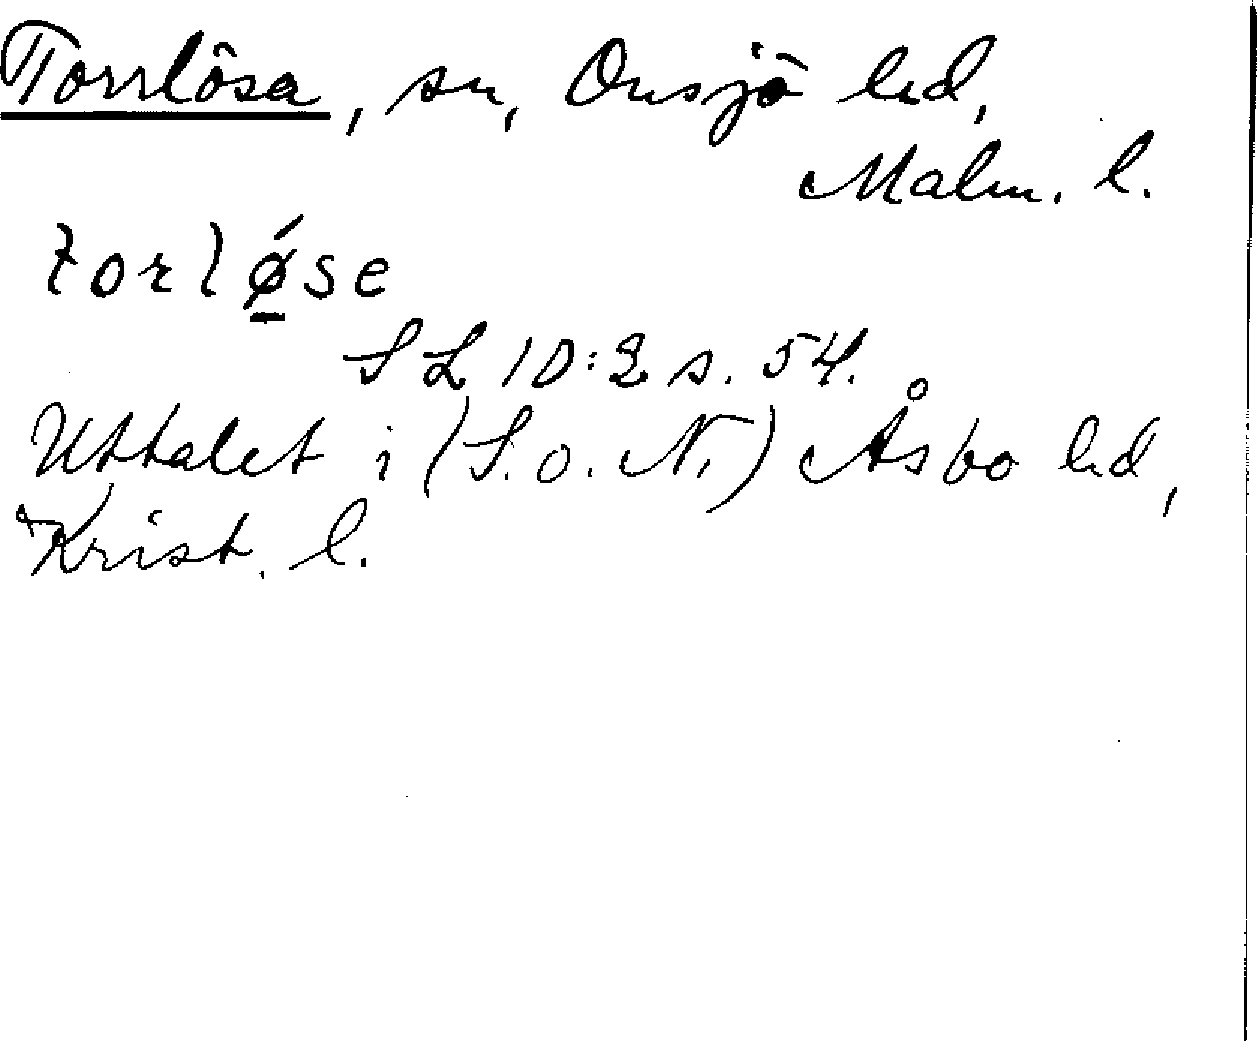 Torrlösa, sn, Onsjö hd,
Malm. l.
torlǿ̱se
SL 10:2 s. 54.
Uttalet i (S. o. N.) Åsbo hd,
Krist. l.